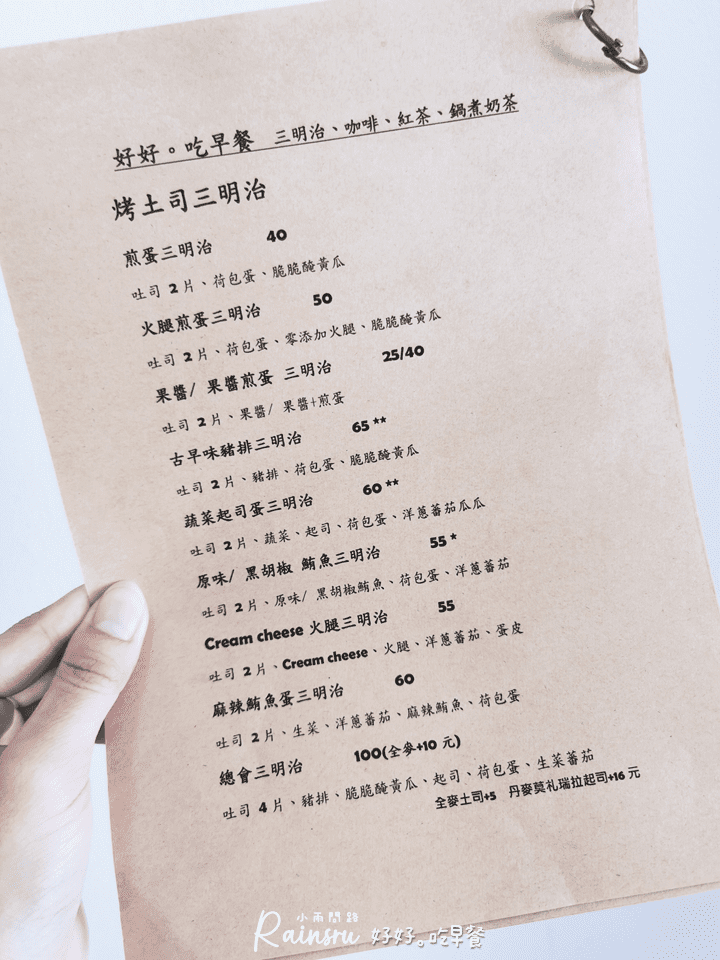 好好。吃早餐 三明治、咖啡、紅茶、鍋煮奶茶
烤土司三明治
煎蛋三明治 40
吐司 2 片、荷包蛋、脆脆醃黃瓜
火腿煎蛋三明治 50
吐司 2 片、荷包蛋、零添加火腿、脆脆醃黃瓜
果醬/ 果醬煎蛋 三明治 25/40
吐司 2 片、果醬/ 果醬+煎蛋
古早味豬排三明治 65 **
吐司 2 片、豬排、荷包蛋、脆脆醃黃瓜
蔬菜起司蛋三明治 60 **
吐司 2 片、蔬菜、起司、荷包蛋、洋蔥蕃茄瓜瓜
原味/ 黑胡椒 鮪魚三明治 55 *
吐司 2 片、原味/ 黑胡椒鮪魚、荷包蛋、洋蔥蕃茄
Cream cheese 火腿三明治 55
吐司 2 片、Cream cheese、火腿、洋蔥蕃茄、蛋皮
麻辣鮪魚蛋三明治 60
吐司 2 片、生菜、洋蔥蕃茄、麻辣鮪魚、荷包蛋
總會三明治 100(全麥+10 元)
吐司 4 片、豬排、脆脆醃黃瓜、起司、荷包蛋、生菜蕃茄
全麥土司+5 丹麥莫礼瑞拉起司+16 元
小雨問路
Rainsru 好好。吃早餐